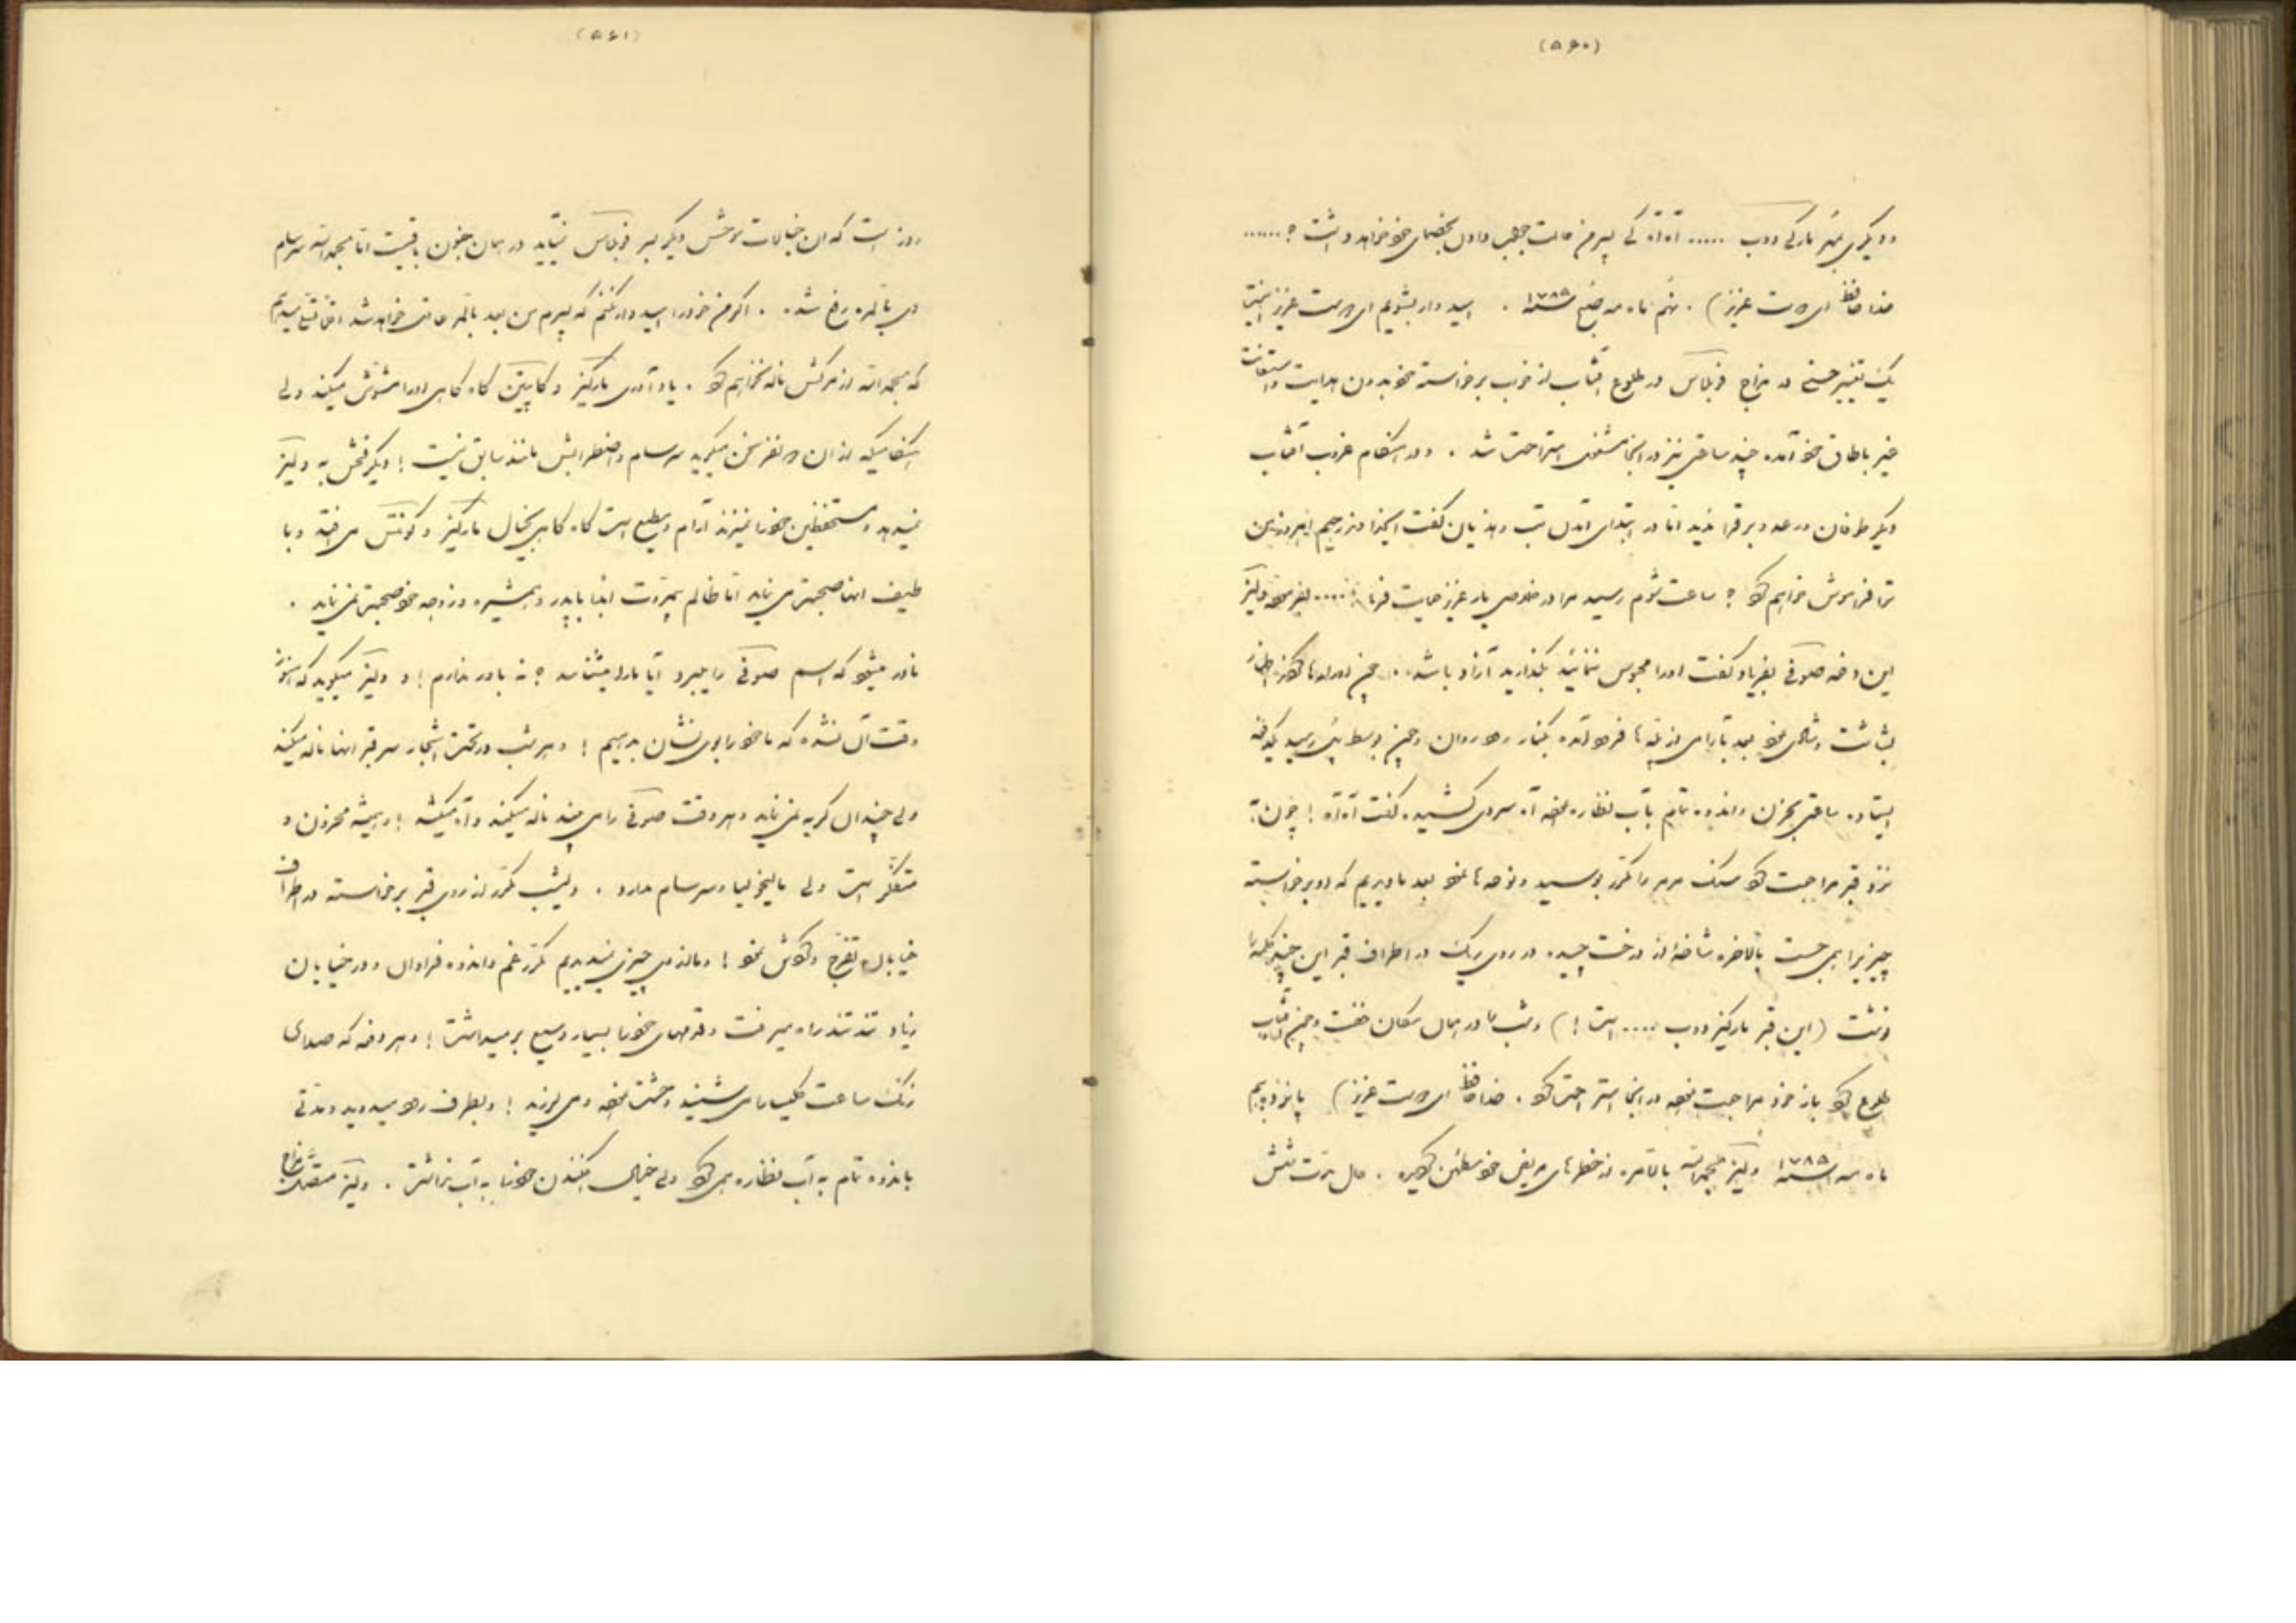 (۵۶۰)
و دیگری بمیر مارکی دوب ..... آه آه کی پسرم حالت جهی داول بخصمای خود خواهد داشت ؟ ......
خدا حافظ ای دوست عزیز) . نهم ماه مه صبح سنه ۱۷۸۵ . امیدوار بشویم ای دوست عزیز اینست
یک تغییر حسنی در مزاج فوبلاس در طلوع آفتاب از خواب برخاسته خود بدون هدایت و استعانت
غیر باطاق خود آمده چند ساعتی نیز در اینجا مشغول استراحت شد . و در هنگام غروب آفتاب
دیگر طوفان و رعد و برق را ندید اما در ابتدای اول شب و هذیان گفت اینکه از
ترا فراموش خواهم کرد ؟ ساعت شوم رسید مرا در خلاصی یار عزیز حمایت فرما .....
این دفعه صوفی بفریاد گفت او را محبوس ننمائید بگذارید آزاد باشد . چون او را رها کردند اظهار
بشاشت و شادی نمود بعد بآرامی از پله‌ها فرود آمده بکنار رود روان و چون بوسط پل رسید یکدفعه
ایستاده ساعتی بحزن و اندوه تمام بآب نظاره نموده آه سردی کشیده گفت آه آه ! چون
نزد قبر مراجعت کرد سنگ مرمر را مکرر بوسید و نوحه‌ها نمود بعد ما دیدیم که او برخاسته
چیزیرا می جست بالاخره شاخهٔ از درخت چیده در روی ریگ در اطراف قبر این چند کلمه را
نوشت (این قبر مارکیز دوب .... است !) و شب را در همان مکان خفت و چون آفتاب
طلوع کرد باز خود مراجعت نموده در اینجا استراحت کرد . خدا حافظ ای دوست عزیز) پانزدهم
ماه مه سنه ۱۷۸۵ ولیز بحمدالله بالمره از خطرهای مریض خود مطمئن گردید . حال مدت شش
(۵۶۱)
روز است که ان خیالات موحش دیگر بسر فوبلاس نمیآید در همان جنون باقیست اما بحمدالله سرسام
وی بالمره رفع شده . اگر من خود را امیدوار کنم که پسرم من بعد بالمره عاقل خواهد شد
که بحمدالله از مرگش ناله نخواهم کرد . یادآوری مارکیز و کاپیتن گاه گاهی او را مشوش میکند ولی
هنگامیکه از ان دو نفر سخن میگوید سرسام و اضطرابش مانند سابق نیست ! دیگر فحش به ولیز
نمیدهد و مستحفظین خود را نمیزند آرام و مطیع است گاه گاهی بخیال مارکیز و کونتس می افتد و با
طیف انها صحبت می نماید اما ظالم بمروت ابدا با پدر و همشیره و زوجه خود صحبت نمی نماید .
نادر میشود که اسم صوفی را میبرد آیا ما را میشناسد ؟ نه باور ندارم ! و ولیز میگوید که هنوز
وقت آن نشده که ما خود را بوی نشان بدهیم ! و هر شب در تحت اشجار سر قبر انها ناله میکند
ولی چندان گریه نمی نماید و هر وقت صوفی را می بیند ناله میکند و آه میکشد ! و همیشه محزون و
متفکر است ولی مالیخولیا و سرسام ندارد . دیشب مکرر از روی قبر برخاسته در اطراف
خیابان تفرج و گردش نمود ! و ما از وی چیزی نمیدیدیم مکرر غم و اندوه فراوان و در خیابان
زیاد تند تند راه میرفت و قدمهای خود را بسیار وسیع برمیداشت ! و هر دفعه که صدای
زنگ ساعت کلیسا را می شنید وحشت نموده می لرزید ! و بطرف رود میدوید و مدتی
باندوه تمام به آب نظاره می کرد ولی خیال افکندن خود را به آب نداشت .